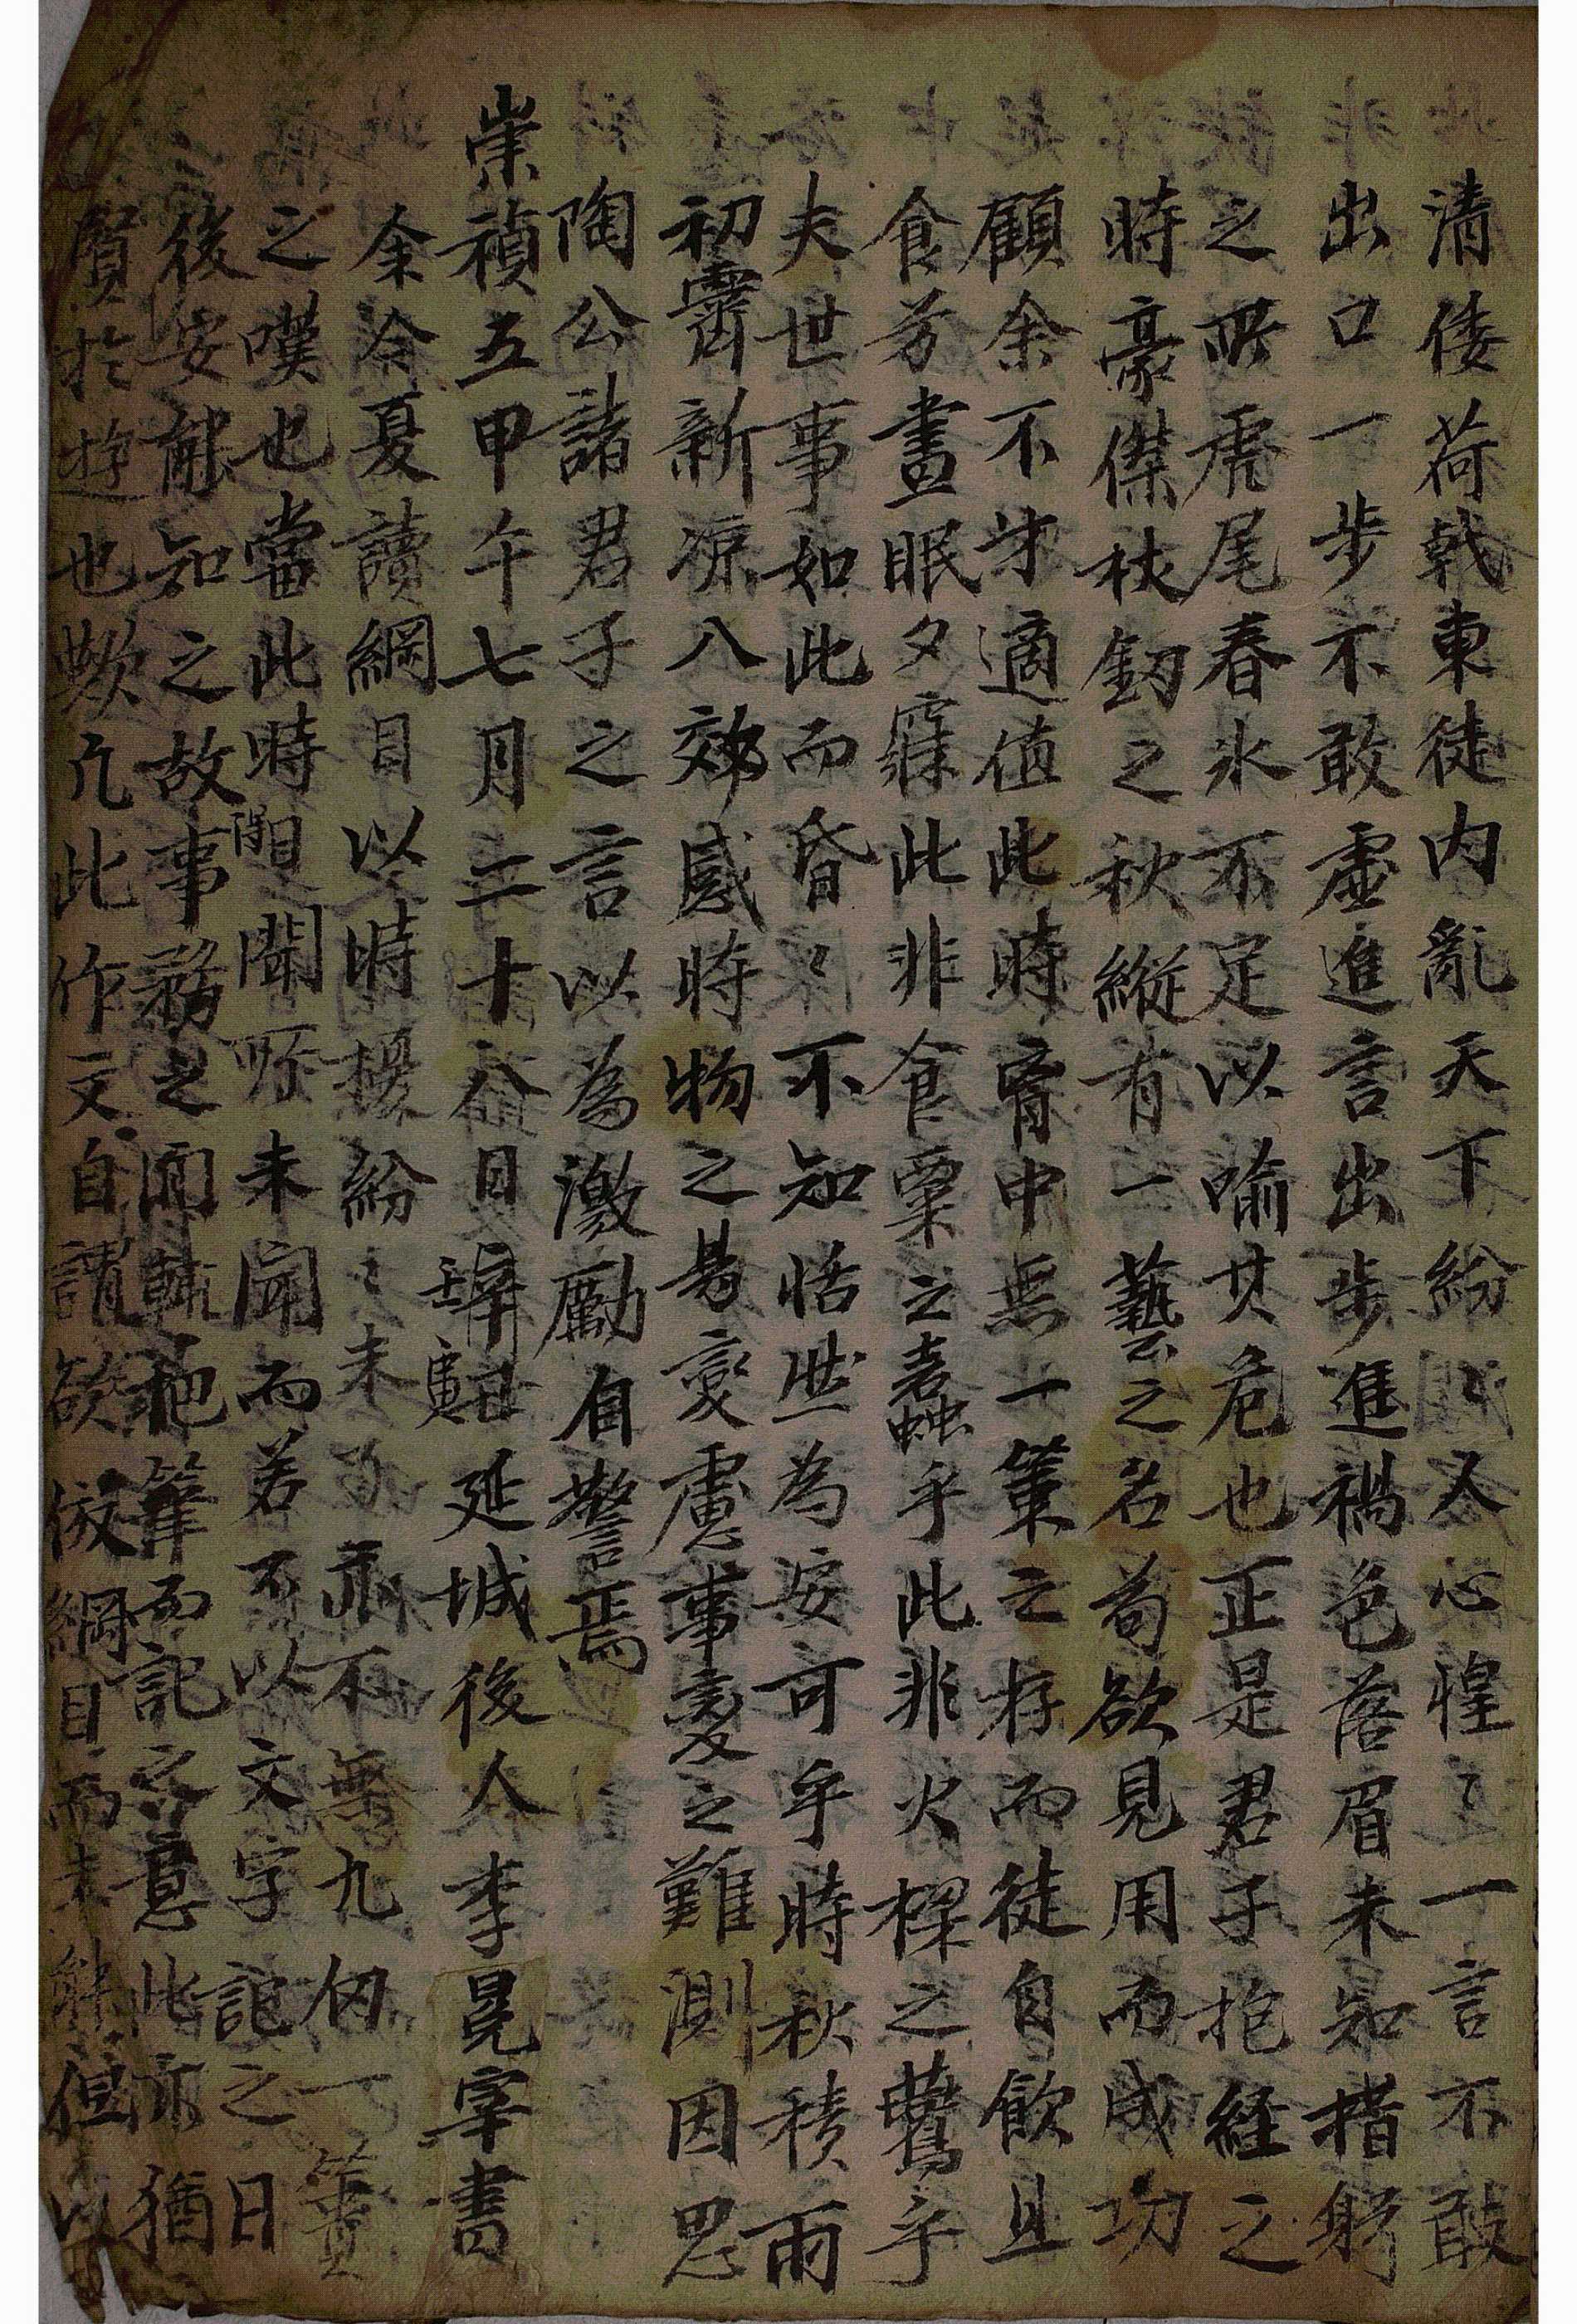 清倭荷戟東徒内亂天下紛〻人心惶〻一言不敢
出口一步不敢虛進言出步進禍色落眉未知措躬
之所虎尾春氷不足以喻其危也正是君子抱経之
時豪傑杖釰之秋縱有一藝之名苟欲見用而成功
顧余不才適值此時胷中無一策之存而徒自飲且
食芳晝眠夕寐此非食粟之蠧乎此非火樑之鷰乎
夫世事如此而昏〻不知恬然為安可乎時秋積雨
初霽新凉入郊感時物之易變慮事變之難測因思
陶公諸君子之言以為激勵自警焉
崇禎五甲午七月二十八日 延城後人李晃宰書
余今夏讀綱目以時擾紛〻未了亦不無九仞一簣
之嘆也當此時聞所未聞而若不以文字記之日
後安能知之故事務之閒輒把筆而記之意此亦猶
賢於遊也歟凡此作文自謂欲倣綱目而未能但以